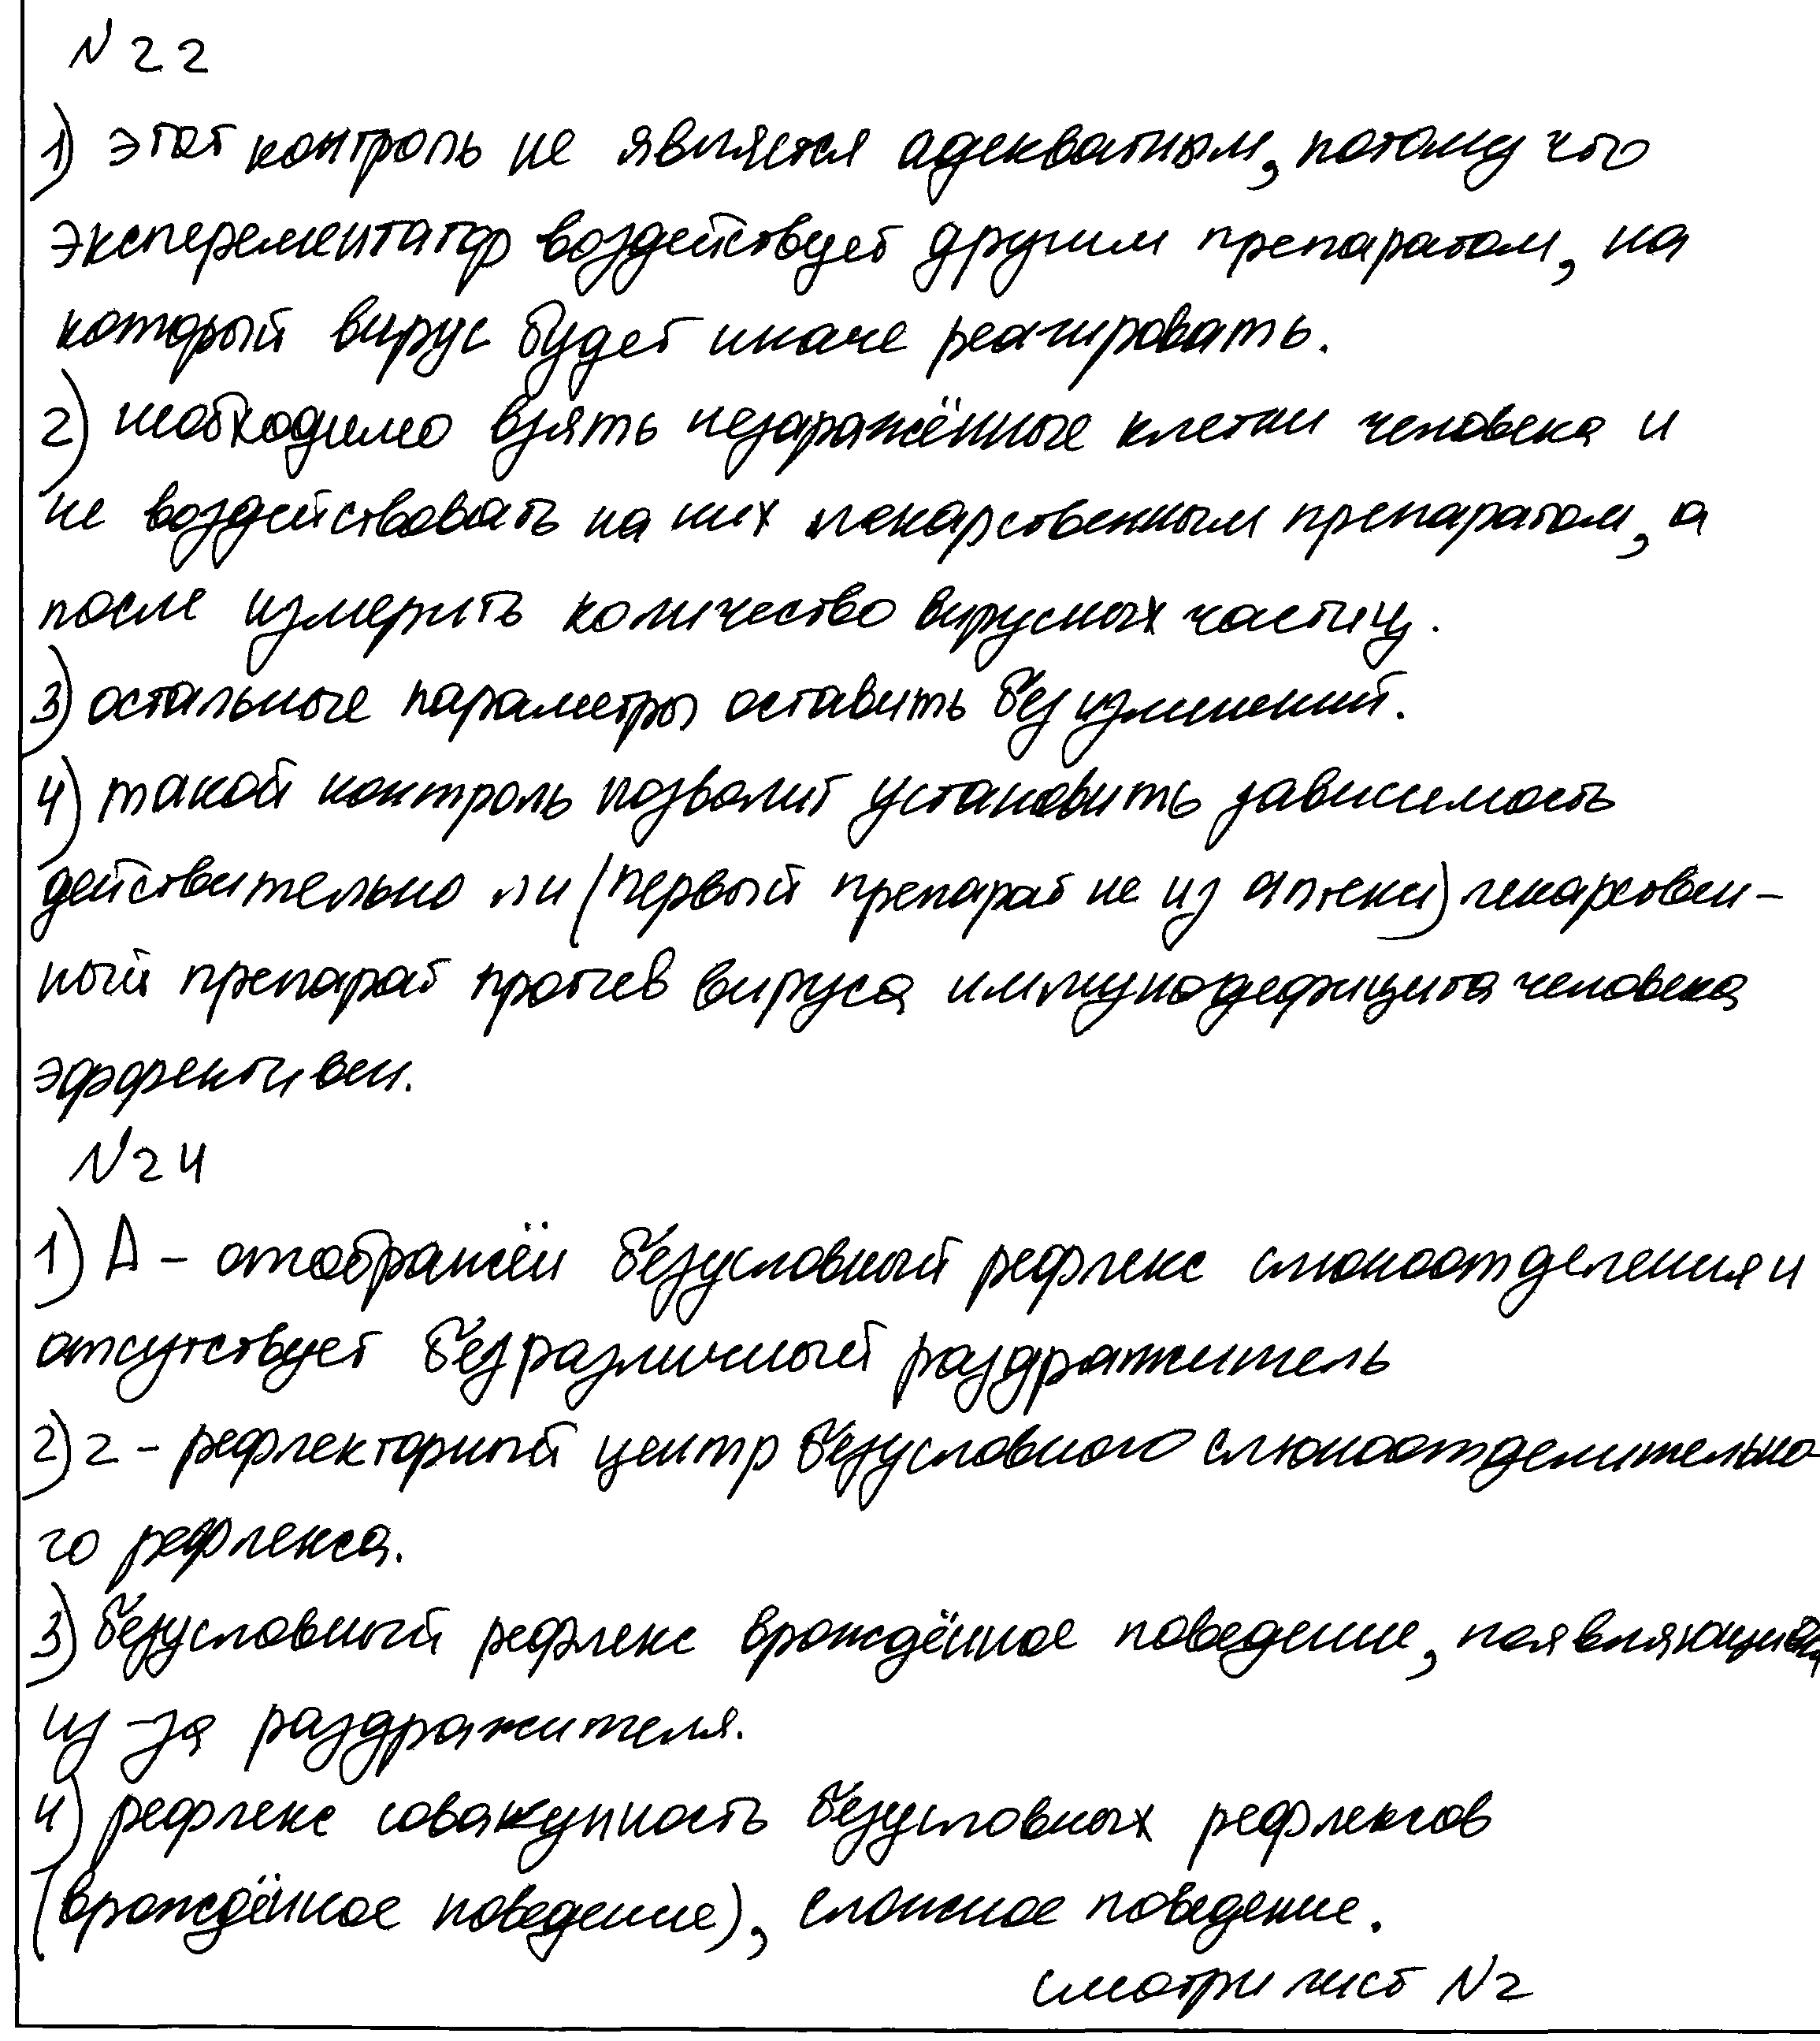 N 22
1) этот контроль не является адекватным, потому что
эксперементатор воздействует другим препаратом, на
который вирус будет иначе реагировать.
2) необходимо взять незаражённые клетки человека и
не воздействовать на них лекарственным препаратом, а
после измерить количество вирусных частиц.
3) остальные параметры оставить без изменений.
4) такой контроль позволит установить зависимость
действительно ли (первый препарат не из аптеки) лекарствен-
ный препарат против вируса иммунодефицита человека
эффективен.
N 24
1) А - отображён безусловный рефлекс слюноотделения и
отсутствует безразличный раздражитель
2) 2 - рефлекторный центр безусловного слюноотделительно-
го рефлекса.
3) безусловный рефлекс врождённое поведение, появляющиеся
из-за раздражителя.
4) рефлекс совокупность безусловных рефлексов
(врождённое поведение), сложное поведение.
смотри лист N 2